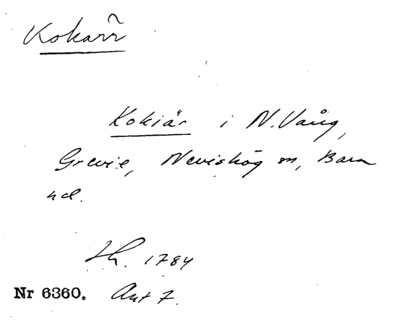 Kokarr
Kokiär i N. Vång,
Grevie, Nevishög m, Bara
hd.
Lh. 1784
Nr 6360. Ant 7.